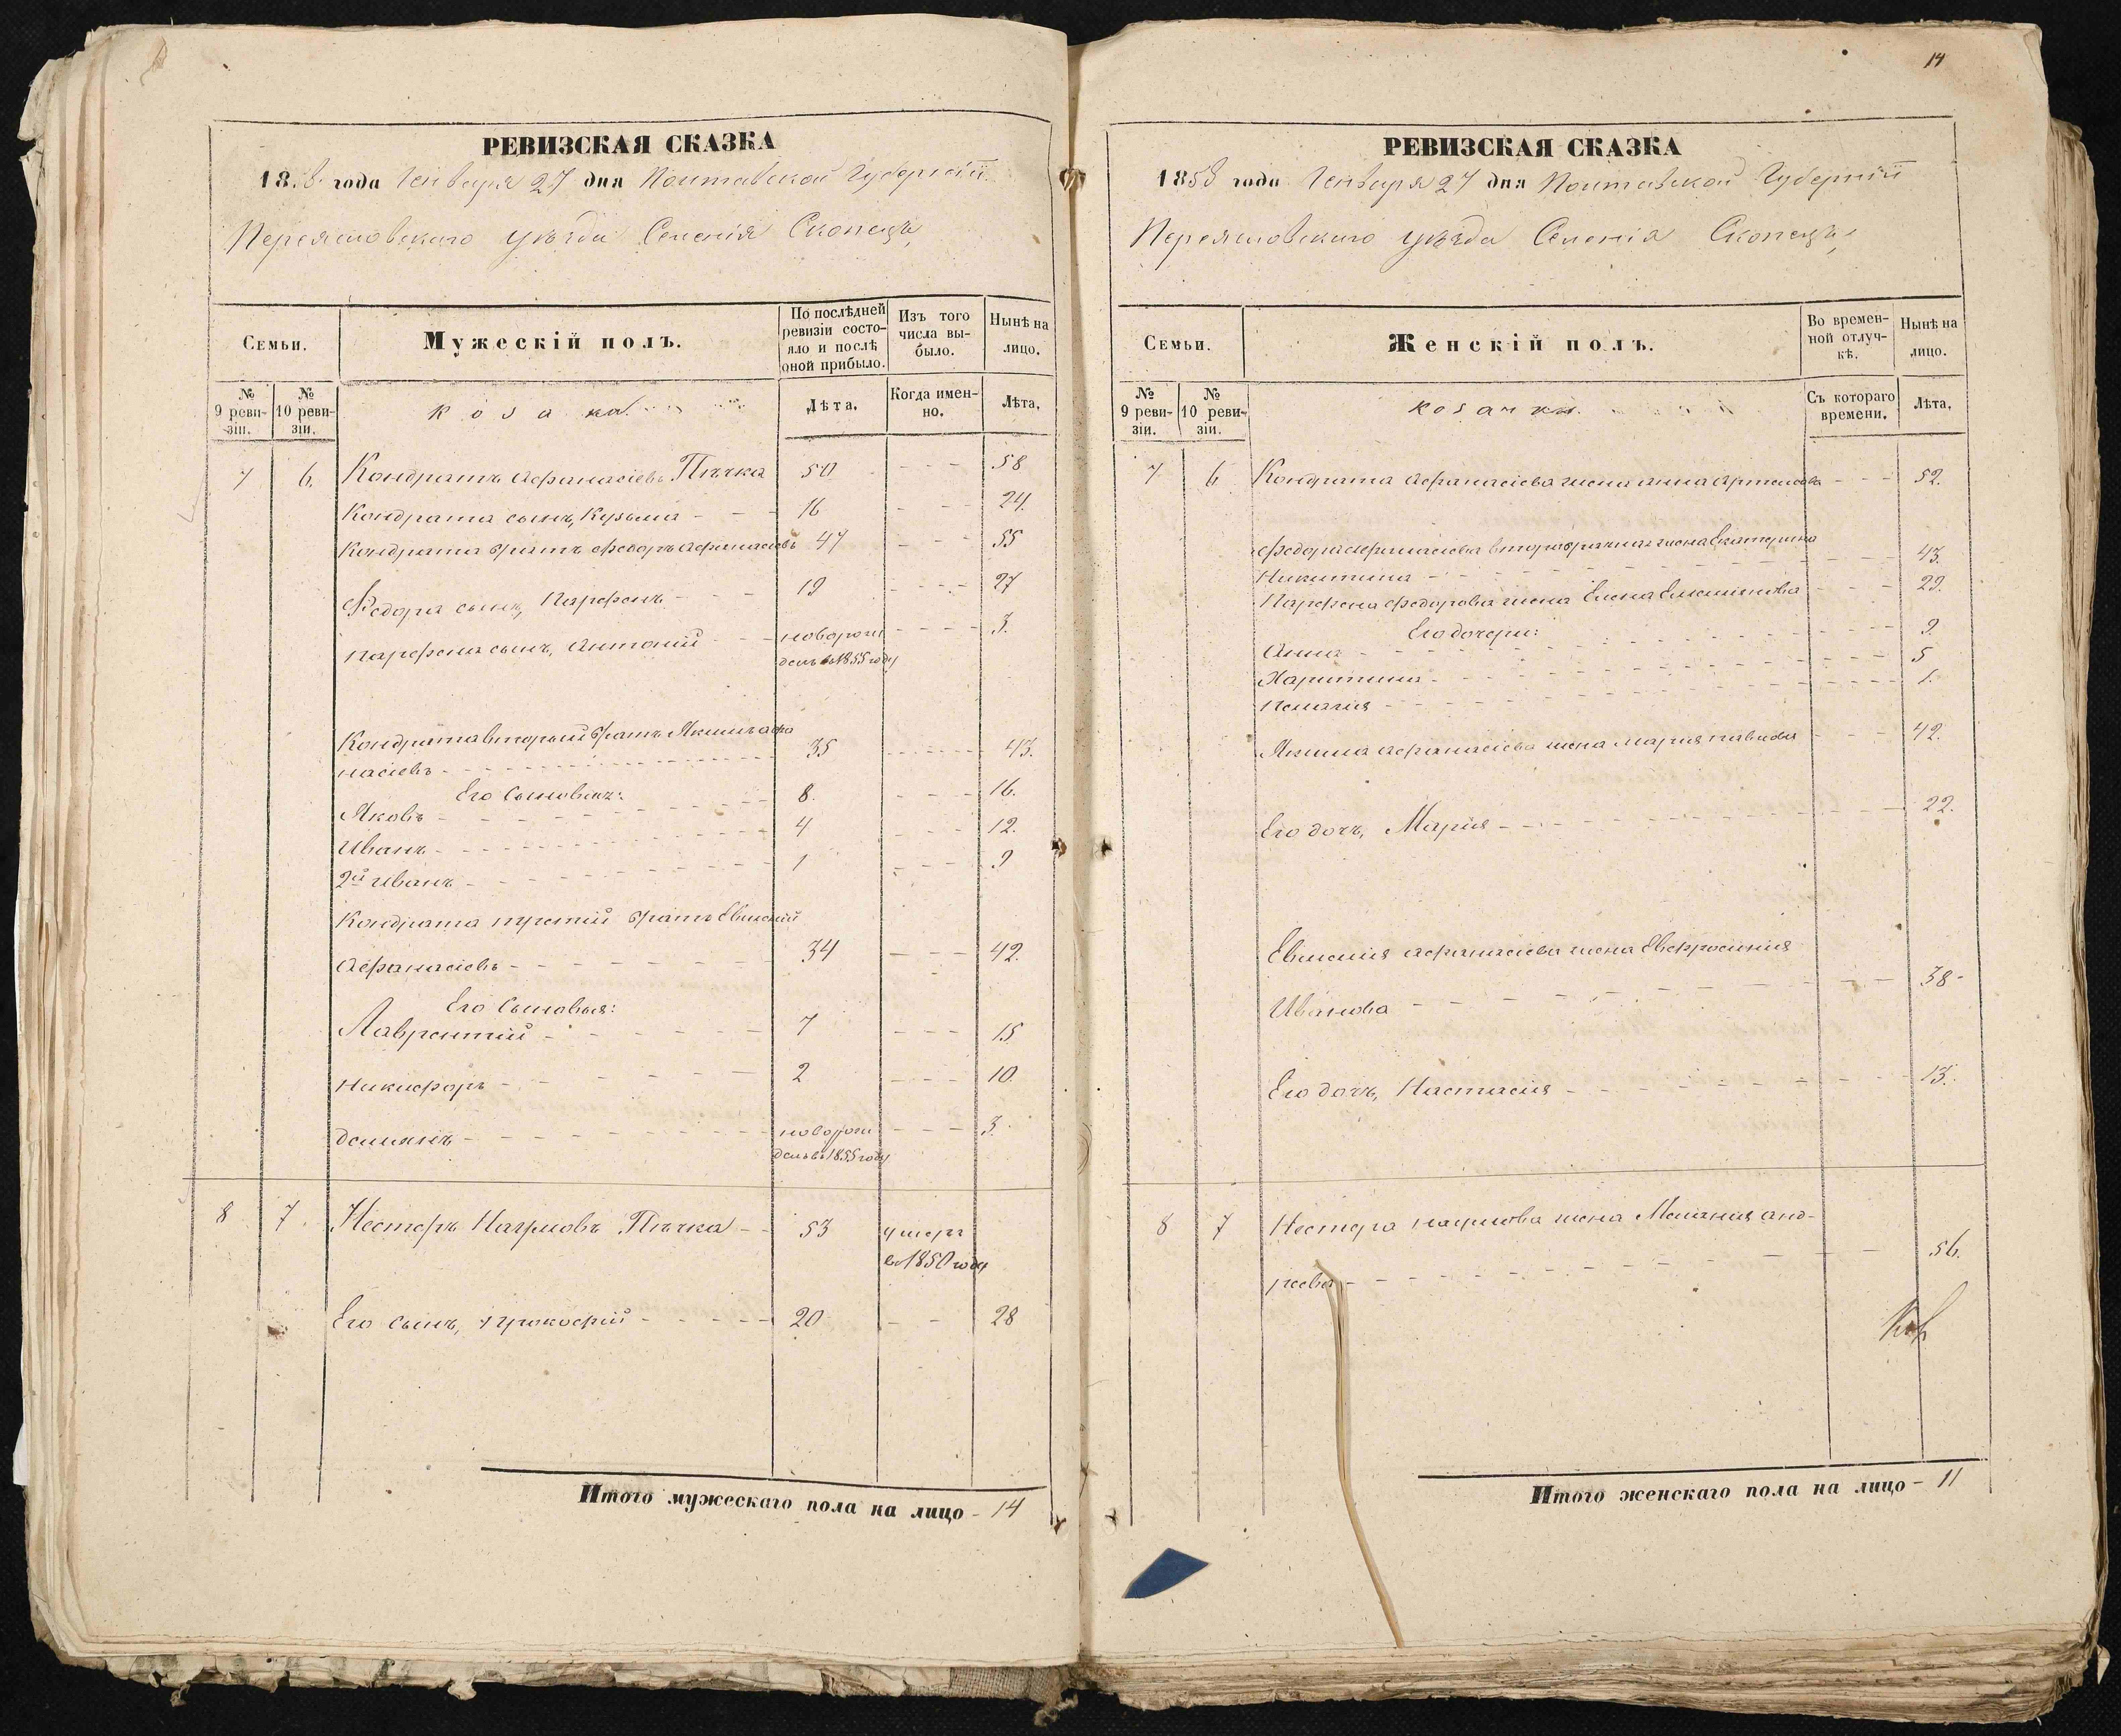 РЕВИЗСКАЯ СКАЗКА
18 8. года Генваря 27 дня Полтавской Губерніи
Переясловскаго уѣзда Селенія Скопецъ
Семьи.
Мужескій полъ.
По послѣдней ревизіи состояло и послѣ оной прибыло.
Изъ того числа выбыло.
Нынѣ на лицо.
№ 9 ревизіи.
№ 10 ревизіи.
козаки.
Лѣта.
Когда именно.
Лѣта.
7 6. Кондратъ Афанасіевъ Пѣчка 50 - - - 58
Кондрата сынъ, Кузьма - - - 16 - - - 24.
Кондрата братъ Федоръ Афанасіевъ 47 - - - 55
Федора сынъ, Парфенъ - - - 19 - - - 27
Парфена сынъ, Антоній - - - новорож - - - 3.
денъ въ 1855 году
Кондрата вторый братъ Якимъ Афа
насіевъ - - - 35 - - - 43.
Его сыновья:
Яковъ - - - 8. - - - 16.
Иванъ - - - 4 - - - 12.
2й Иванъ - - - 1 - - - 9
Кондрата третій братъ Евтихій
Афанасіевъ - - - 34 - - - 42.
Его сыновья:
Лаврентій - - - 7 - - - 15
Никифоръ - - - 2 - - - 10.
Демянъ - - - новорож - - - 3.
денъ въ 1855 году
8 7. Несторъ Наумовъ Пѣчка - - 53 умеръ
въ 1850 году
Его сынъ, Прокофій - - - 20 - - 28
Итого мужескаго пола на лицо - 14
14
РЕВИЗСКАЯ СКАЗКА
1858 года Генваря 27 дня Полтавской Губерніи
Переясловскаго уѣзда Селенія Скопецъ
Семьи.
Женскій полъ.
Во временной отлучкѣ.
Нынѣ на лицо.
№ 9 ревизіи.
№ 10 ревизіи.
козачки.
Съ котораго времени.
Лѣта.
7 6 Кондрата Афанасіева жена Анна Артемова - - - 52.
Федора Афанасіева второбрачная жена Екатерина
Никитина - - - 43.
Парфена Федорова жена Елена - - - 29.
Его дочери:
Анна - - - 9.
Харитина - - - 5
Пелагія - - - 1.
Якима Афанасіева жена Марія Павлова - - - 42.
Его дочь, Марія - - - 22.
Евтихія Афанасіева жена Евфросинія
Иванова - - - 38-
Его дочь, Настасія - - - 13.
8 7 Нестера Наумова жена Меланія Анд-
реева - - - 56.
Итого женскаго пола на лицо - 11